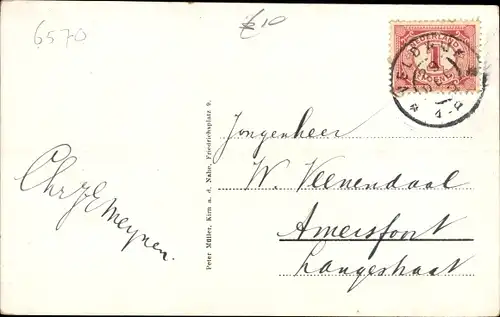 6570
€10
NEDERLAND
1
CENT
Jongenheer
W. Veenendaal
Amersfoort
Langestraat
Meynen.
Peter Müller, Kirn a. d. Nahe, Friedrichsplatz 9.